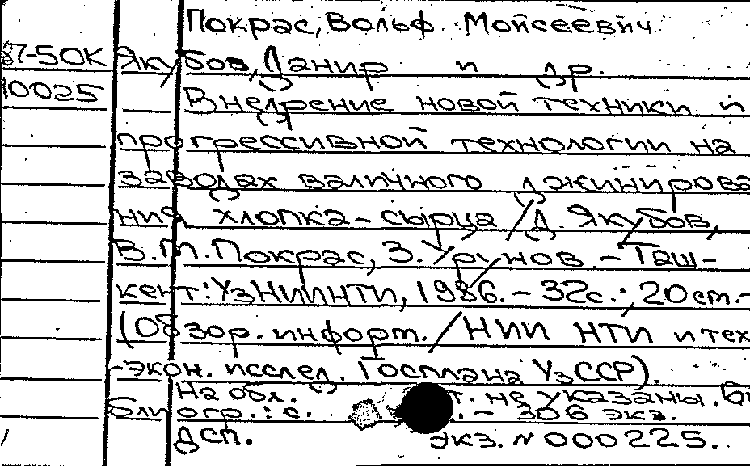 Покрас, Вольф Мойсеевич
87-50К Якубов, Данир и др.
10025 Внедрение новой техники и
прогрессивной технологии на
заводах валичного джинирова
ния хлопка-сырца / Д. Якубов,
В.М. Покрас, З. Урунов. - Таш-
кент: УзНИИНТИ, 1986. - 32с.; 20 см. -
(Обзор. информ. / НИИ НТИ и тех
-экон. исслед. Госплана УзССР).
На обл. т. не указаны. Би
блиогр.: с. . - 306 экз.
ДСП. экз. № 000225.